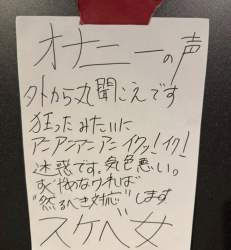 オナニーの声
外から丸聞こえです
狂ったみたいに
アニアンアニアニイクッ!イク!
迷惑です。気色悪い。
すぐやめなければ
"然るべき対応"します
スケベ女